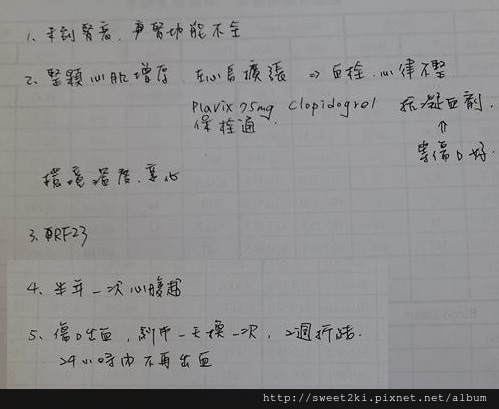 1、 腎衰,再腎功能不全
2、整顆心肌增厚,左心房擴張 ⇒ 血栓.心律不整
Plavix 75mg clopidogrel 抗凝血劑.
保栓通
↑
等傷口好.
環境溫度.
3、RF23
4、半年一次心腹超
5、傷口出血,紗布一天換一次,2週拆線.
24小時內不再出血
http://sweet2ki.pixnet.net/album